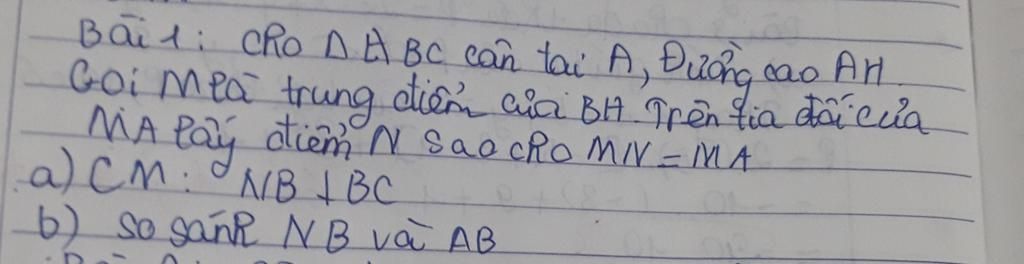 Bài 1: cho Δ ABC cân tại A, Đường cao AH
Gọi M là trung điểm của BH. Trên tia đối của
MA lấy điểm N sao cho MN = MA
a) CM: NB ⊥ BC
b) so sánh NB và AB